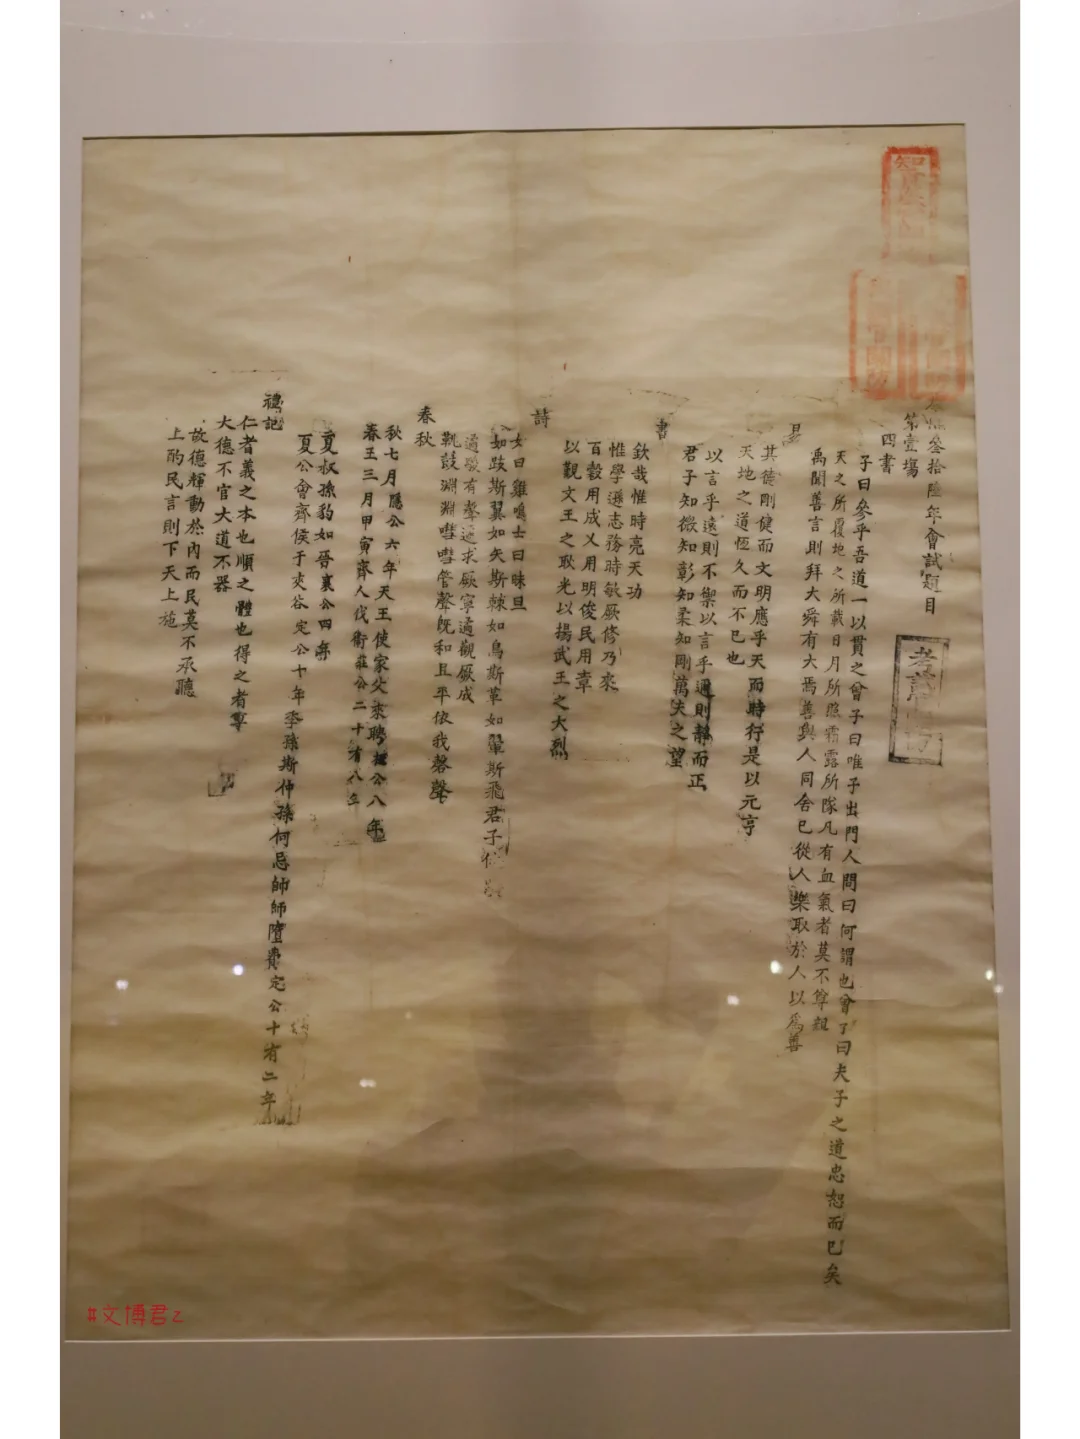 叁拾陸年會試題目
第壹場
四書
子曰參乎吾道一以貫之曾子曰唯子出門人問曰何謂也曾子曰夫子之道忠恕而已矣
天之所覆地之所載日月所照霜露所隊凡有血氣者莫不尊親
禹聞善言則拜大舜有大焉善與人同舍己從人樂取於人以為善
易
其德剛健而文明應乎天而時行是以元亨
天地之道恆久而不已也
以言乎遠則不禦以言乎邇則靜而正
君子知微知彰知柔知剛萬夫之望
書
欽哉惟時亮天功
惟學遜志務時敏厥修乃來
百穀用成乂用明俊民用章
以覲文王之耿光以揚武王之大烈
詩
女曰雞鳴士曰昧旦
如跂斯翼如矢斯棘如鳥斯革如翬斯飛君子攸
遹駿有聲遹求厥寧遹觀厥成
鞉鼓淵淵嘒嘒管聲既和且平依我磬聲
春秋
秋七月隱公六年天王使家父來聘桓公八年
春王三月甲寅齊人伐衛莊公二十有八年
夏叔孫豹如晉襄公四年
夏公會齊侯于夾谷定公十年季孫斯仲孫何忌帥師墮費定公十有二年
禮記
仁者義之本也順之體也得之者尊
大德不官大道不器
故德輝動於內而民莫不承聽
上酌民言則下天上施
#文博君z